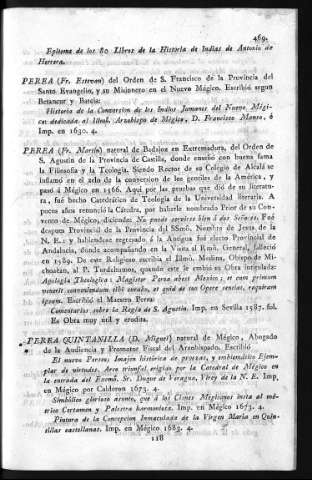 469.
Epitome de los 80 Libros de la Historia de Indias de Antonio de
Herrera.
PEREA (Fr. Estevan) del Orden de S. Francisco de la Provincia del
Santo Evangelio, y su Misionero en el Nuevo Mégico. Escribió segun
Betancur y Barcia:
Historia de la Conversion de los Indios Jumanos del Nuevo Mégi-
co dedicada al Illmō. Arzobispo de Mégico, D. Francisco Manso, ó
Imp. en 1630. 4.
PEREA (Fr. Martin) natural de Badajoz en Extremadura, del Orden de
S. Agustin de la Provincia de Castilla, donde enseñó con buena fama
la Filosofia y la Teología. Siendo Rector de su Colegio de Alcalá se
inflamó en el zelo de la conversion de los gentiles de la América, y
pasó á Mégico en 1566. Aqui por las pruebas que dió de su literatu-
ra, fué hecho Catedrático de Teología de la Universidad literaria. A
pocos años renunció la Cátedra, por haberle nombrado Prior de su Con-
vento de Mégico, diciendo: No puedo servirse bien á dos Señores. Fué
despues Provincial de la Provincia del SSmō. Nombre de Jesus de la
N. E.: y habiendose regresado á la Antigua fué electo Provincial de
Andalucia, donde acompañando en la Visita al Rmō. General, falleció
en 1589. De este Religioso escribia el Illmō. Medina, Obispo de Mi-
choacan, al P. Turdehumos, quando este le embió su Obra intitulada:
Apología Theologica: Magister Perea abest Mexico; et cum primum
venerit convenlendum tibi curabo, et quid de tua Opere sentiat, exquiram
ipsum. Escribió el Maestro Perea:
Comentarios sobre la Regla de S. Agustin. Imp. en Sevilla 1587. fol.
Es Obra muy util y erudita.
PEREA QUINTANILLA (D. Miguel) natural de Mégico, Abogado
de la Audiencia y Promotor Fiscal del Arzobispado. Escribió
El nuevo Perseo; Imajen histórica de proezas, y emblemático Ejem-
plar de virtudes. Arco triunfal erigido por la Catedral de Mégico en
la entrada del Excmō. Sr. Duque de Veragua, Virey de la N. E. Imp.
en Mégico por Calderon 1673. 4.
Simbólico glorioso asunto, que á los Cisnes Megicanos insta al mé-
trico Certamen y Palestra harmoniosa. Imp. en Mégico 1673. 4.
Pintura de la Concepcion Inmaculada de la Virgen Maria en Quin-
tillas castellanas. Imp. en Mégico 1683. 4.
118